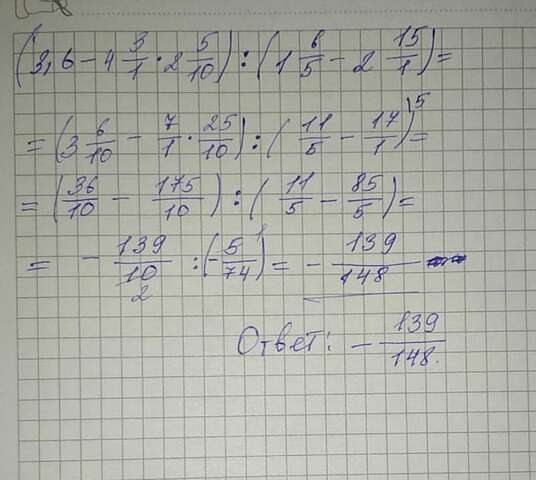 (3,6 - 4 3/1 · 2 5/10) : (1 6/5 - 2 15/1) =
= (3 6/10 - 7/1 · 25/10) : (11/5 - 17/1)^5 =
= (36/10 - 175/10) : (11/5 - 85/5) =
= - 139/10 2 : (- 5/74)^1 = - 139/148
Ответ: - 139/148.